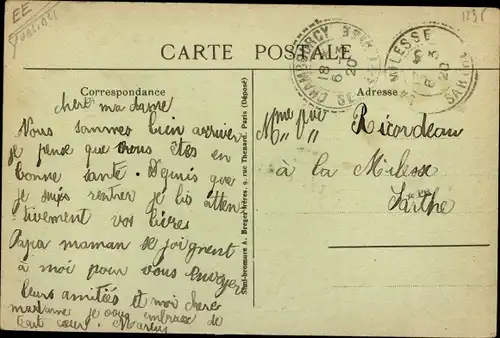 EE
1235
CARTE POSTALE
CHAMBOURCY
18 6 20
MILESSE
SARTHE
8 20
Correspondance
Adresse
chere madame
Nous sommes bien arriver
je pense que vous êtes en
bonne santé. Depuis que
je suis rentrer je lis atten
tivement vos livres
Papa maman se joignent
à moi pour vous envoyer
leurs amitiés et moi chere
madame je vous embrasse de
tout cœur. Marius
Simi-bromure A. Breger frères, 9, rue Thenard, Paris (Déposé)
Mme Ricordeau
à la Milesse
Sarthe